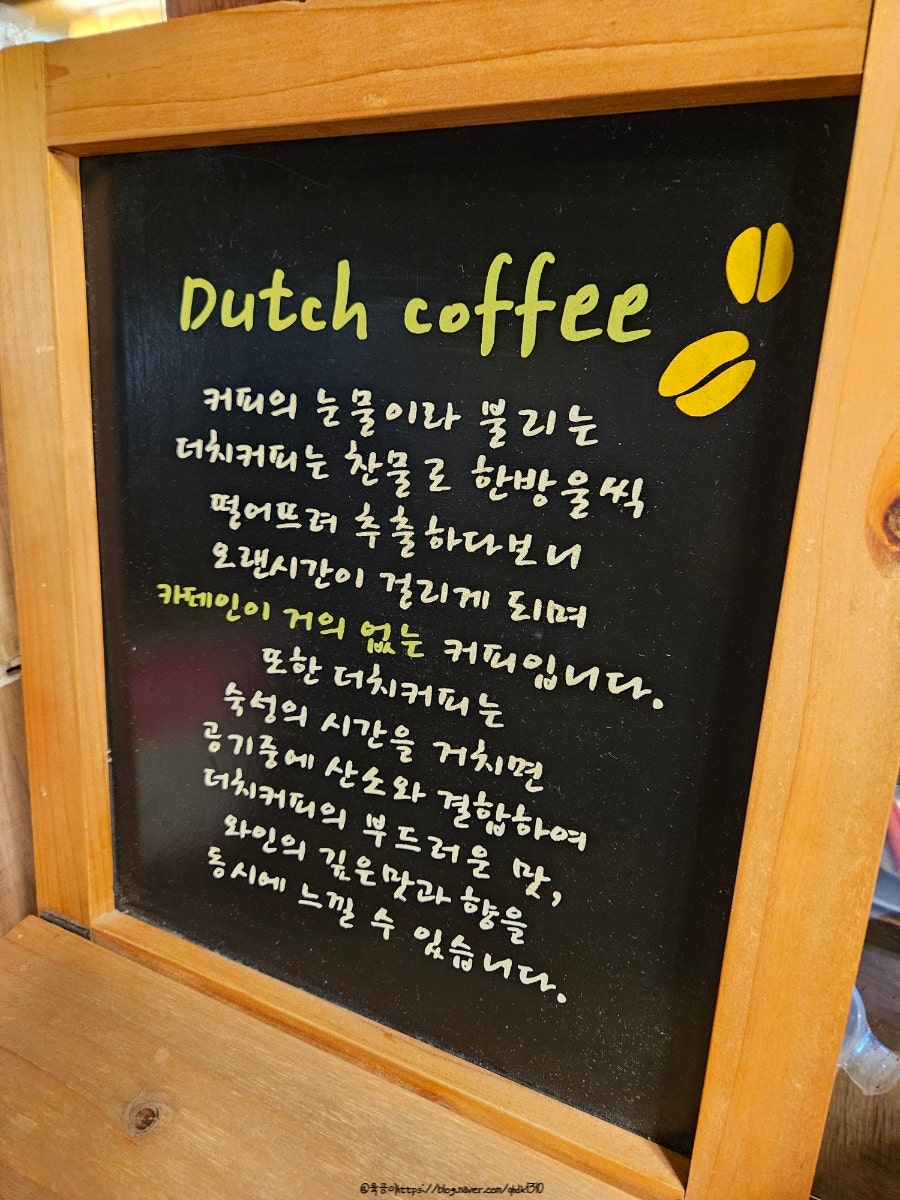 Dutch coffee
커피의 눈물이라 불리는
더치커피는 찬물로 한방울씩
떨어뜨려 추출하다보니
오랜시간이 걸리게 되며
카페인이 거의 없는 커피입니다.
또한 더치커피는
숙성의 시간을 거치면
공기중에 산소와 결합하여
더치커피의 부드러운 맛,
와인의 깊은맛과 향을
동시에 느낄 수 있습니다.